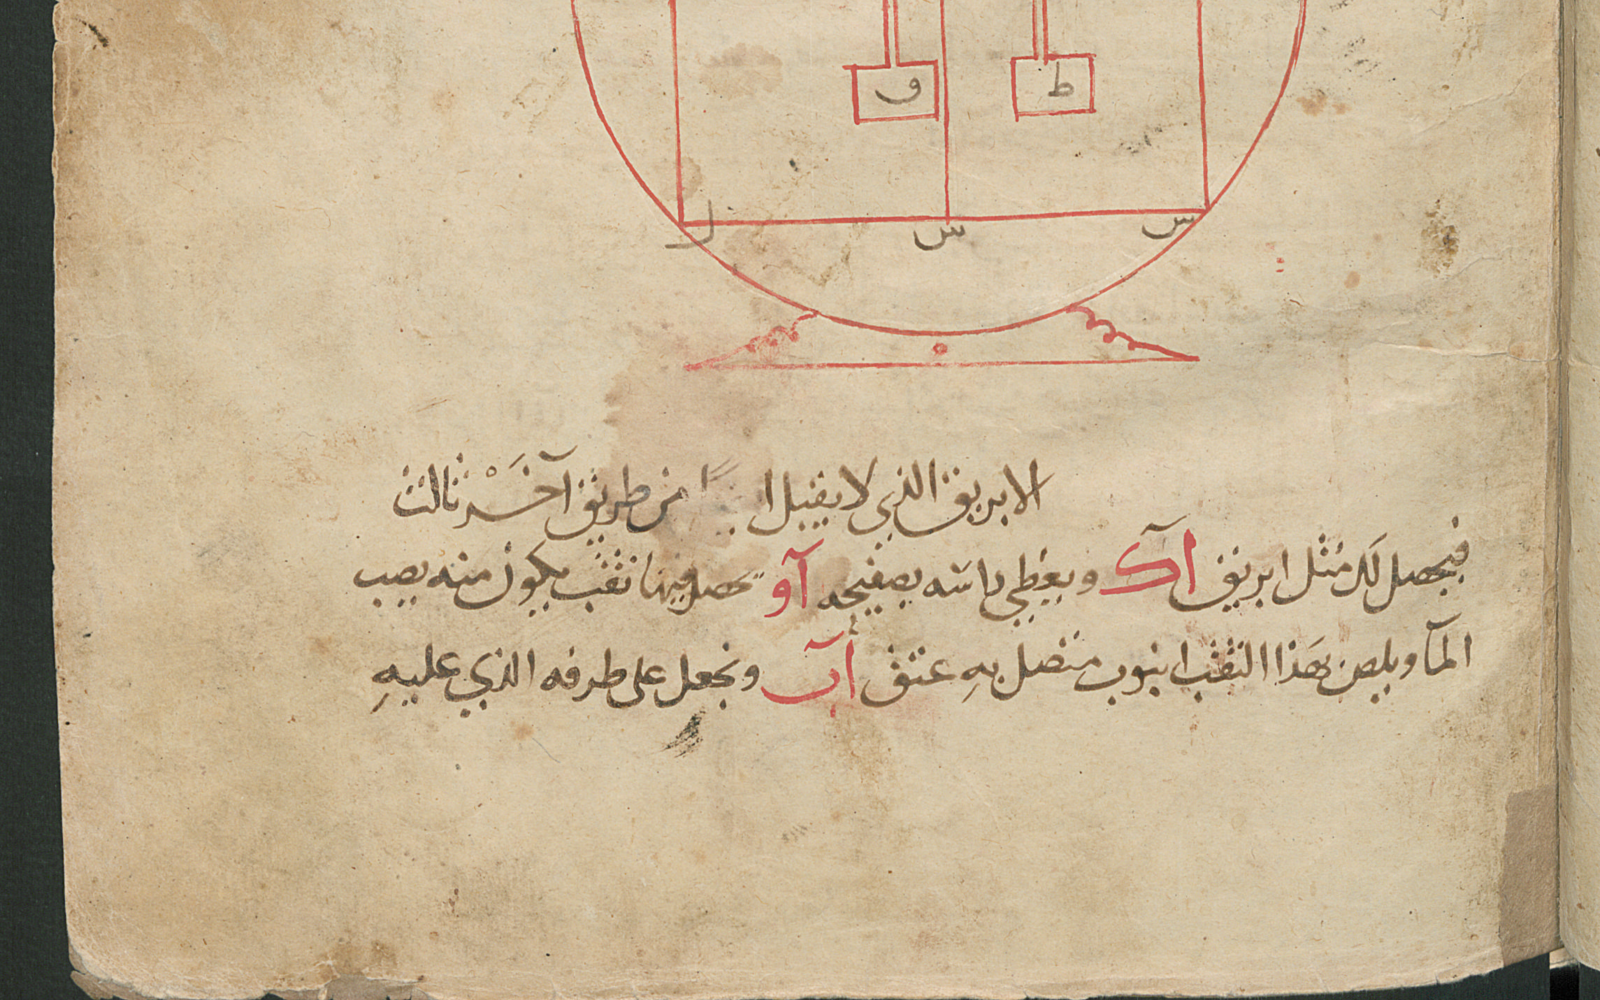 ف ط
ل س س
الابريق الذي لا يقبل من طريق آخَرْ ثالث
فيحصل لك مثل ابريق آك ويغطي راسه بصفيحه آو فيها ثقب يكون منه يصب
المآ ويلصق بهذا الثقب انبوب متصل به عنق آب ونجعل على طرفه الذي عليهِ